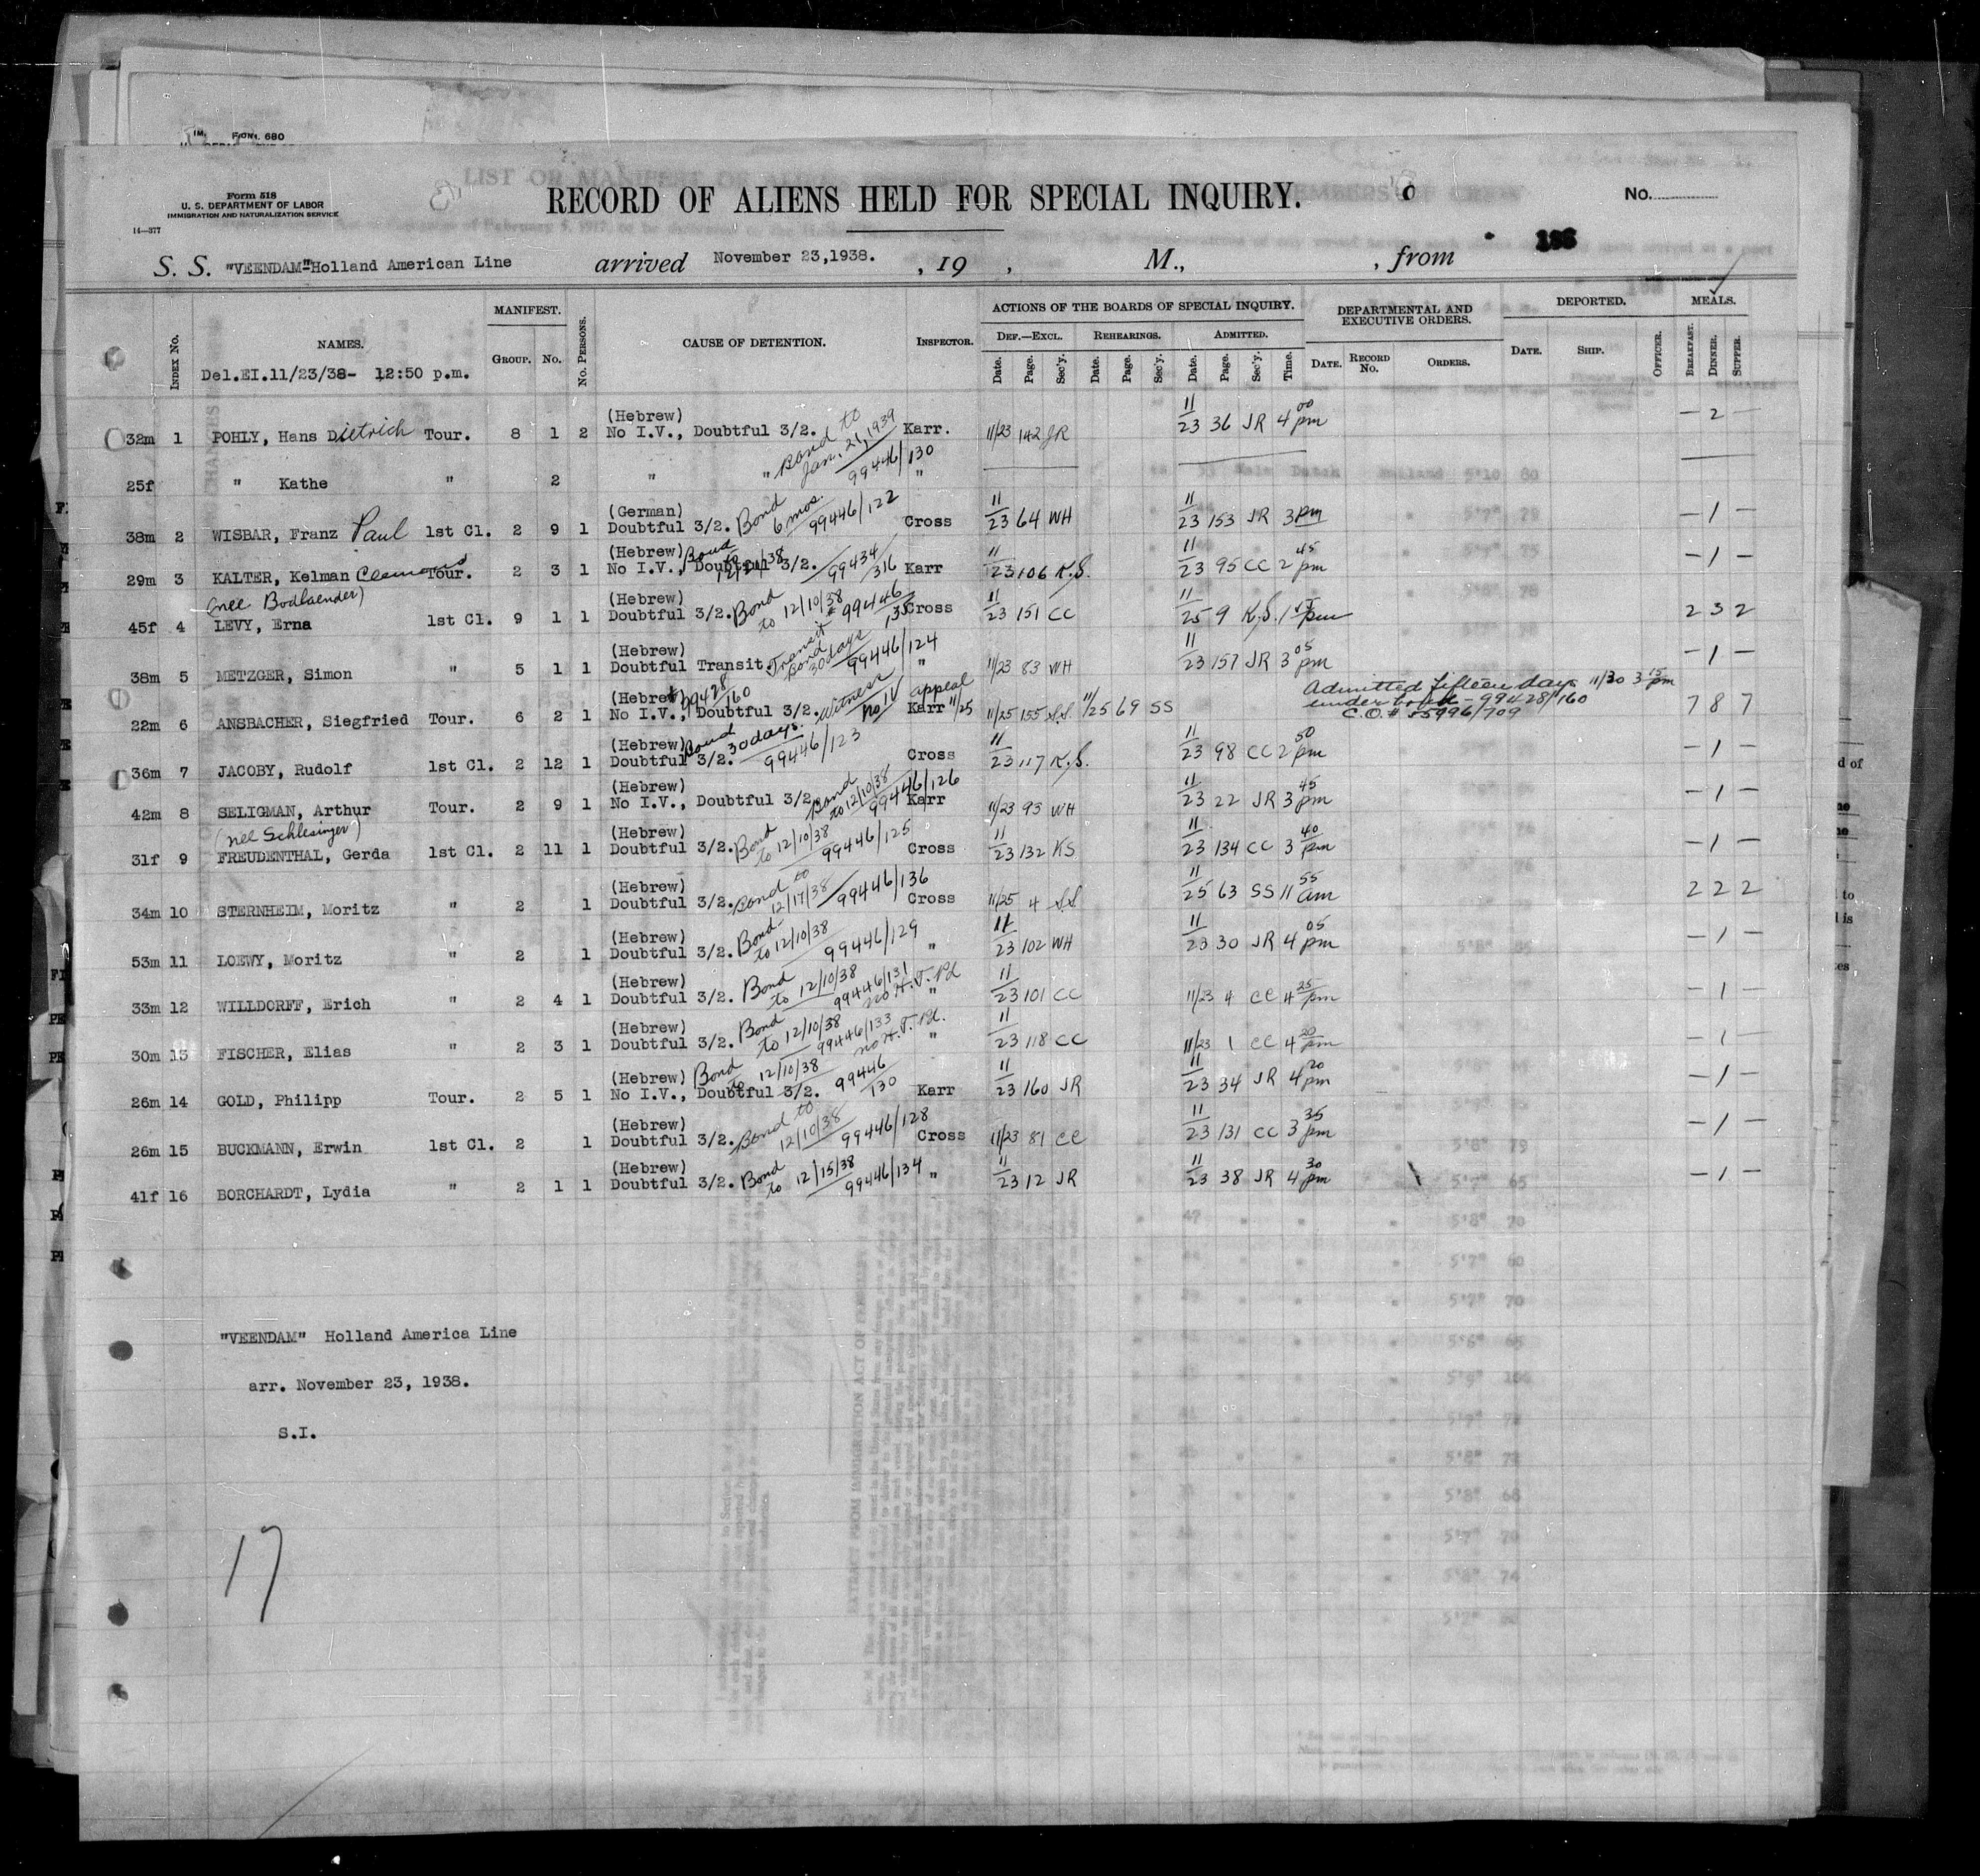 FORM 680
Form 518
U. S. DEPARTMENT OF LABOR
IMMIGRATION AND NATURALIZATION SERVICE
14—377
RECORD OF ALIENS HELD FOR SPECIAL INQUIRY.
No.
S. S. "VEENDAM" Holland American Line arrived November 23, 1938. , 19 , M., , from
INDEX No. NAMES. MANIFEST. GROUP. No. No. PERSONS. CAUSE OF DETENTION. INSPECTOR. ACTIONS OF THE BOARDS OF SPECIAL INQUIRY. DEF.—EXCL. Date. Page. Sec'y. REHEARINGS. Date. Page. Sec'y. ADMITTED. Date. Page. Sec'y. Time. DEPARTMENTAL AND EXECUTIVE ORDERS. DATE. RECORD No. ORDERS. DEPORTED. DATE. SHIP. OFFICER. MEALS. BREAKFAST. DINNER. SUPPER.
Del.EI.11/23/38- 12:50 p.m.
32m 1 POHLY, Hans Dietrich Tour. 8 1 2 (Hebrew) No I.V., Doubtful 3/2. Bond to Jan. 21, 1939 99446/130 Karr. 11/23 142 JR 11/23 36 JR 4 00 pm — 2 —
25f " Kathe " 2 " " "
38m 2 WISBAR, Franz Paul 1st Cl. 2 9 1 (German) Doubtful 3/2. Bond 6 mos. 99446/122 Cross 11/23 64 WH 11/23 153 JR 3 pm — 1 —
29m 3 KALTER, Kelman Clemens Tour. 2 3 1 (Hebrew) No I.V., Doubtful 3/2. Bond to 99434/316 Karr 11/23 106 K.S. 11/23 95 CC 2 45 pm — 1 —
(nee Bodlaender)
45f 4 LEVY, Erna 1st Cl. 9 1 1 (Hebrew) Doubtful 3/2. Bond to 12/10/38 99446 Cross 11/23 151 CC 11/25 9 K.S. 1 pm 2 3 2
38m 5 METZGER, Simon " 5 1 1 (Hebrew) Doubtful Transit. Transit Bond 30 days 99446/124 " 11/23 83 WH 11/23 157 JR 3 05 pm — 1 —
22m 6 ANSBACHER, Siegfried Tour. 6 2 1 (Hebrew) No I.V., Doubtful 3/2. 99428/160 Witness no IV appeal Karr 11/25 11/25 155 S.S. 11/25 69 SS Admitted fifteen days 11/30 3 15 pm under bond - 99428/160 C.O.# 55996/709 7 8 7
36m 7 JACOBY, Rudolf 1st Cl. 2 12 1 (Hebrew) Doubtful 3/2. Bond 30 days. 99446/123 Cross 11/23 117 K.S. 11/23 98 CC 2 50 pm — 1 —
42m 8 SELIGMAN, Arthur Tour. 2 9 1 (Hebrew) No I.V., Doubtful 3/2. Bond to 12/10/38 99446/126 Karr 11/23 93 WH 11/23 22 JR 3 45 pm — 1 —
(nee Schlesinger)
31f 9 FREUDENTHAL, Gerda 1st Cl. 2 11 1 (Hebrew) Doubtful 3/2. Bond to 12/10/38 99446/125 Cross 11/23 132 KS 11/23 134 CC 3 40 pm — 1 —
34m 10 STERNHEIM, Moritz " 2 1 (Hebrew) Doubtful 3/2. Bond to 12/17/38 99446/136 Cross 11/25 4 S.S. 11/25 63 SS 11 55 am 2 2 2
53m 11 LOEWY, Moritz " 2 1 (Hebrew) Doubtful 3/2. Bond to 12/10/38 99446/129 " 11/23 102 WH 11/23 30 JR 4 05 pm — 1 —
33m 12 WILLDORFF, Erich " 2 4 1 (Hebrew) Doubtful 3/2. Bond to 12/10/38 99446/131 no H.T. Pd " 11/23 101 CC 11/23 4 CC 4 25 pm — 1 —
30m 13 FISCHER, Elias " 2 3 1 (Hebrew) Doubtful 3/2. Bond to 12/10/38 99446/133 no H.T. Pd. " 11/23 118 CC 11/23 1 CC 4 20 pm — 1 —
26m 14 GOLD, Philipp Tour. 2 5 1 (Hebrew) No I.V., Doubtful 3/2. Bond to 12/10/38 99446/130 Karr 11/23 160 JR 11/23 34 JR 4 20 pm — 1 —
26m 15 BUCKMANN, Erwin 1st Cl. 2 1 (Hebrew) Doubtful 3/2. Bond to 12/10/38 99446/128 Cross 11/23 81 CC 11/23 131 CC 3 35 pm — 1 —
41f 16 BORCHARDT, Lydia " 2 1 1 (Hebrew) Doubtful 3/2. Bond to 12/15/38 99446/134 " 11/23 12 JR 11/23 38 JR 4 30 pm — 1 —
"VEENDAM" Holland America Line
arr. November 23, 1938.
S.I.
17